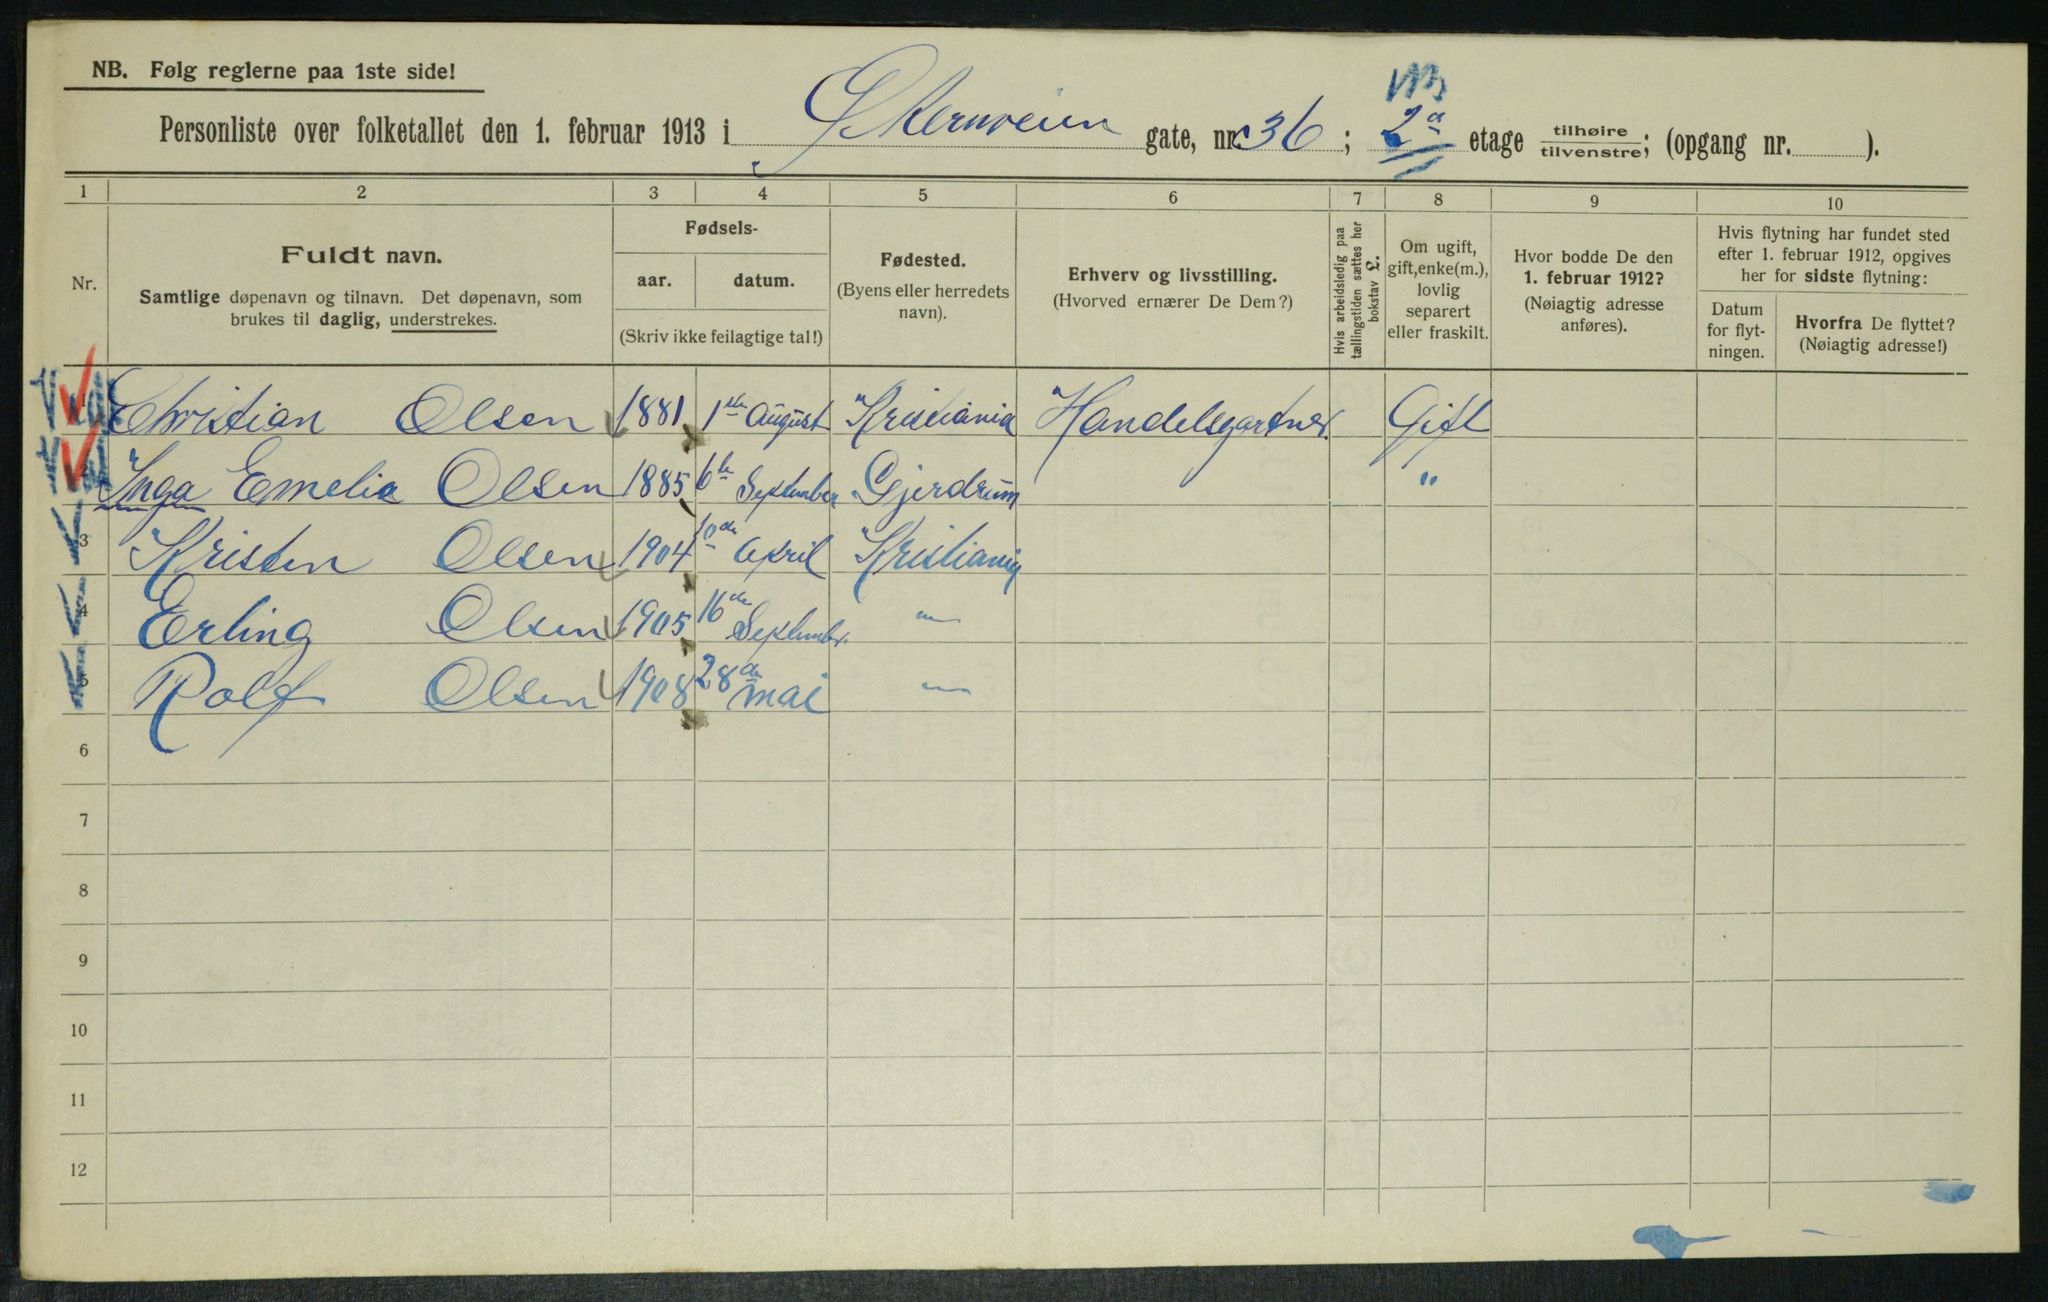 NB. Følg reglerne paa 1ste side!
Personliste over folketallet den 1. februar 1913 i gate, nr. 36; 2a etage tilhøire/tilvenstre; (opgang nr. ).
1 2 3 4 5 6 7 8 9 10
Nr.
Fuldt navn.
Samtlige døpenavn og tilnavn. Det døpenavn, som
brukes til daglig, understrekes.
Fødsels-
aar. datum.
(Skriv ikke feilagtige tal!)
Fødested.
(Byens eller herredets
navn).
Erhverv og livsstilling.
(Hvorved ernærer De Dem?)
Hvis arbeidsledig paa
tællingstiden sættes her
bokstav L.
Om ugift,
gift, enke(m.),
lovlig
separert
eller fraskilt.
Hvor bodde De den
1. februar 1912?
(Nøiagtig adresse
anføres).
Hvis flytning har fundet sted
efter 1. februar 1912, opgives
her for sidste flytning:
Datum
for flyt-
ningen.
Hvorfra De flyttet?
(Nøiagtig adresse!)
Christian Olsen 1881 1ste August Kristiania Handelsgartner. Gift
Inga Emelie Olsen 1885 6te September Gjerdrum "
3 Kristen Olsen 1904 10de April Kristiania
4 Erling Olsen 1905 16de Septembr. —
5 Rolf Olsen 1908 28de mai —
6
7
8
9
10
11
12